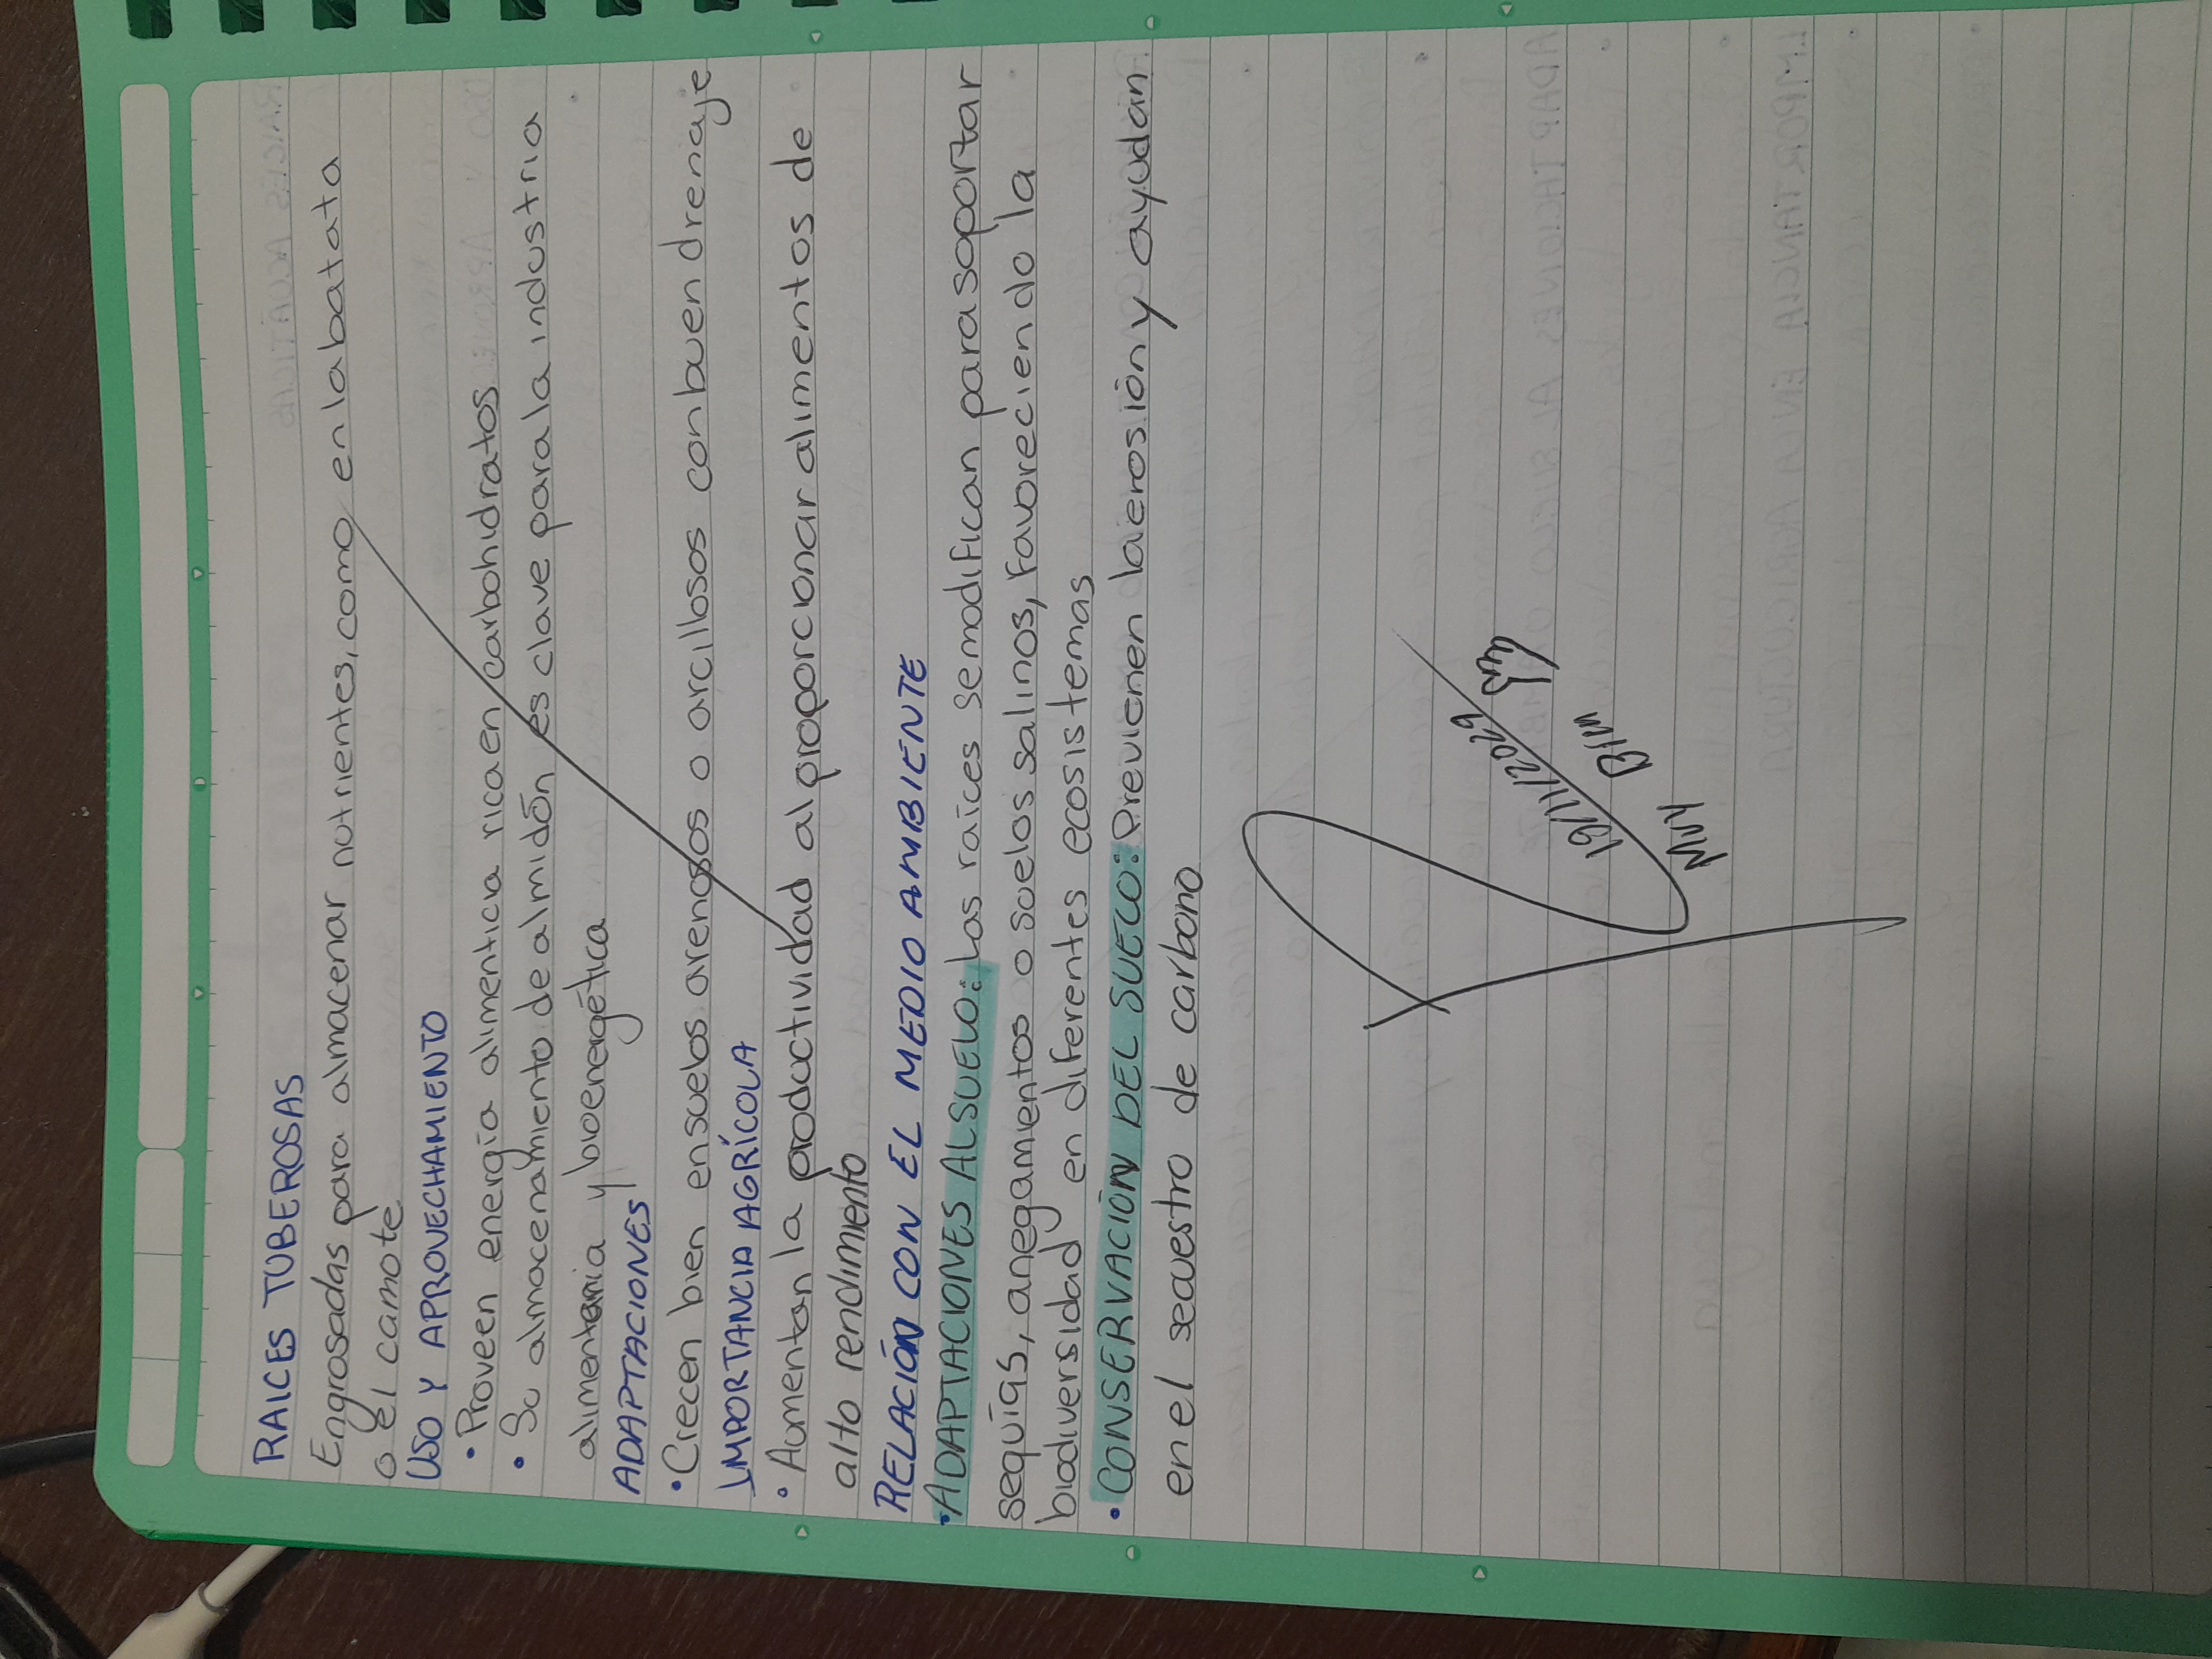 RAICES TUBEROSAS
Engrosadas para almacenar nutrientes, como en la batata
o el camote
USO Y APROVECHAMIENTO
• Proveen energía alimenticia rica en carbohidratos
• Su almacenamiento de almidón es clave para la industria
alimentaria y bioenergética
ADAPTACIONES
• Crecen bien en suelos arenosos o arcillosos con buen drenaje
IMPORTANCIA AGRÍCOLA
• Aumentan la productividad al proporcionar alimentos de
alto rendimiento
RELACIÓN CON EL MEDIO AMBIENTE
• ADAPTACIONES AL SUELO: Las raíces se modifican para soportar
sequías, anegamientos o suelos salinos, favoreciendo la
biodiversidad en diferentes ecosistemas
• CONSERVACIÓN DEL SUELO: Previenen la erosión y ayudan
en el secuestro de carbono
19/11/2024
Muy Bien